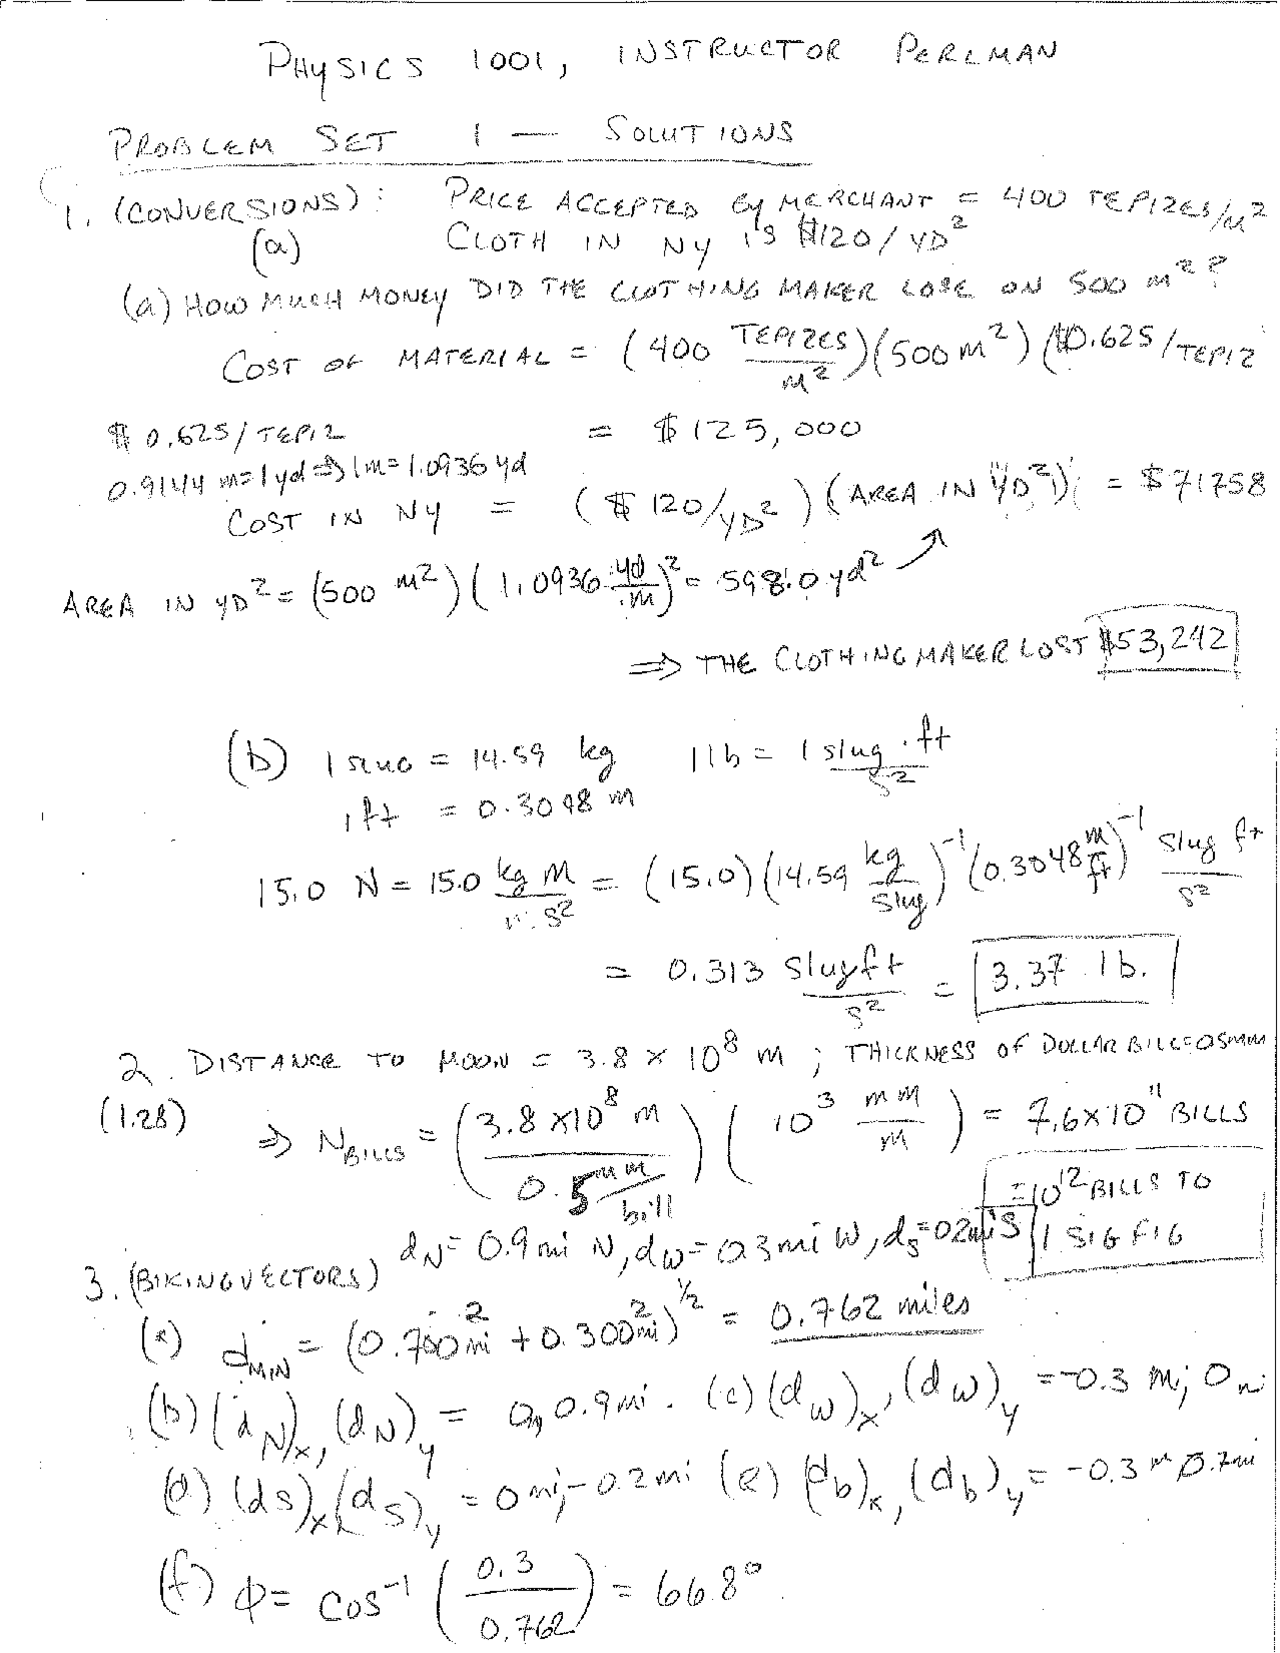 PHYSICS 1001, INSTRUCTOR PERLMAN
PROBLEM SET 1 — SOLUTIONS
1. (CONVERSIONS): PRICE ACCEPTED BY MERCHANT = 400 TEPIZES/M²
(a) CLOTH IN NY IS $120/YD²
(a) HOW MUCH MONEY DID THE CLOTHING MAKER LOSE ON 500 m²?
COST OF MATERIAL = (400 TEPIZES/M²)(500 m²)($0.625/TEPIZ
$0.625/TEPIZ = $125,000
0.9144 m=1yd ⇒ 1m=1.0936yd
COST IN NY = ($120/YD²)(AREA IN YD²) = $71758
AREA IN YD² = (500 m²)(1.0936 yd/m)² = 598.0yd²
⇒ THE CLOTHING MAKER LOST $53,242
(b) 1 SLUG = 14.59 kg 1lb = 1 slug·ft/s²
1ft = 0.3048 m
15.0 N = 15.0 kg M/s² = (15.0)(14.59 kg/slug)⁻¹(0.3048 m/ft)⁻¹ slug ft/s²
= 0.313 slug ft/s² = 3.37 lb.
2. DISTANCE TO MOON = 3.8 × 10⁸ m; THICKNESS OF DOLLAR BILL=0.5mm
(1.28) ⇒ N_BILLS = (3.8×10⁸ m / 0.5 mm/bill)(10³ mm/m) = 7.6×10¹¹ BILLS
=10¹² BILLS TO
1 SIG FIG
3. (BIKING VECTORS) d_N= 0.9mi N, d_W= 0.3mi W, d_S=0.2mi S
(a) d_MIN = (0.700mi² + 0.300mi²)^1/2 = 0.762 miles
(b) (d_N)_x, (d_N)_y = 0, 0.9mi. (c) (d_W)_x, (d_W)_y = -0.3 mi; 0 mi
(d) (d_S)_x, (d_S)_y = 0 mi, -0.2 mi (e) (d_b)_x, (d_b)_y = -0.3 m 0.7mi
(f) Φ = COS⁻¹(0.3/0.762) = 66.8°